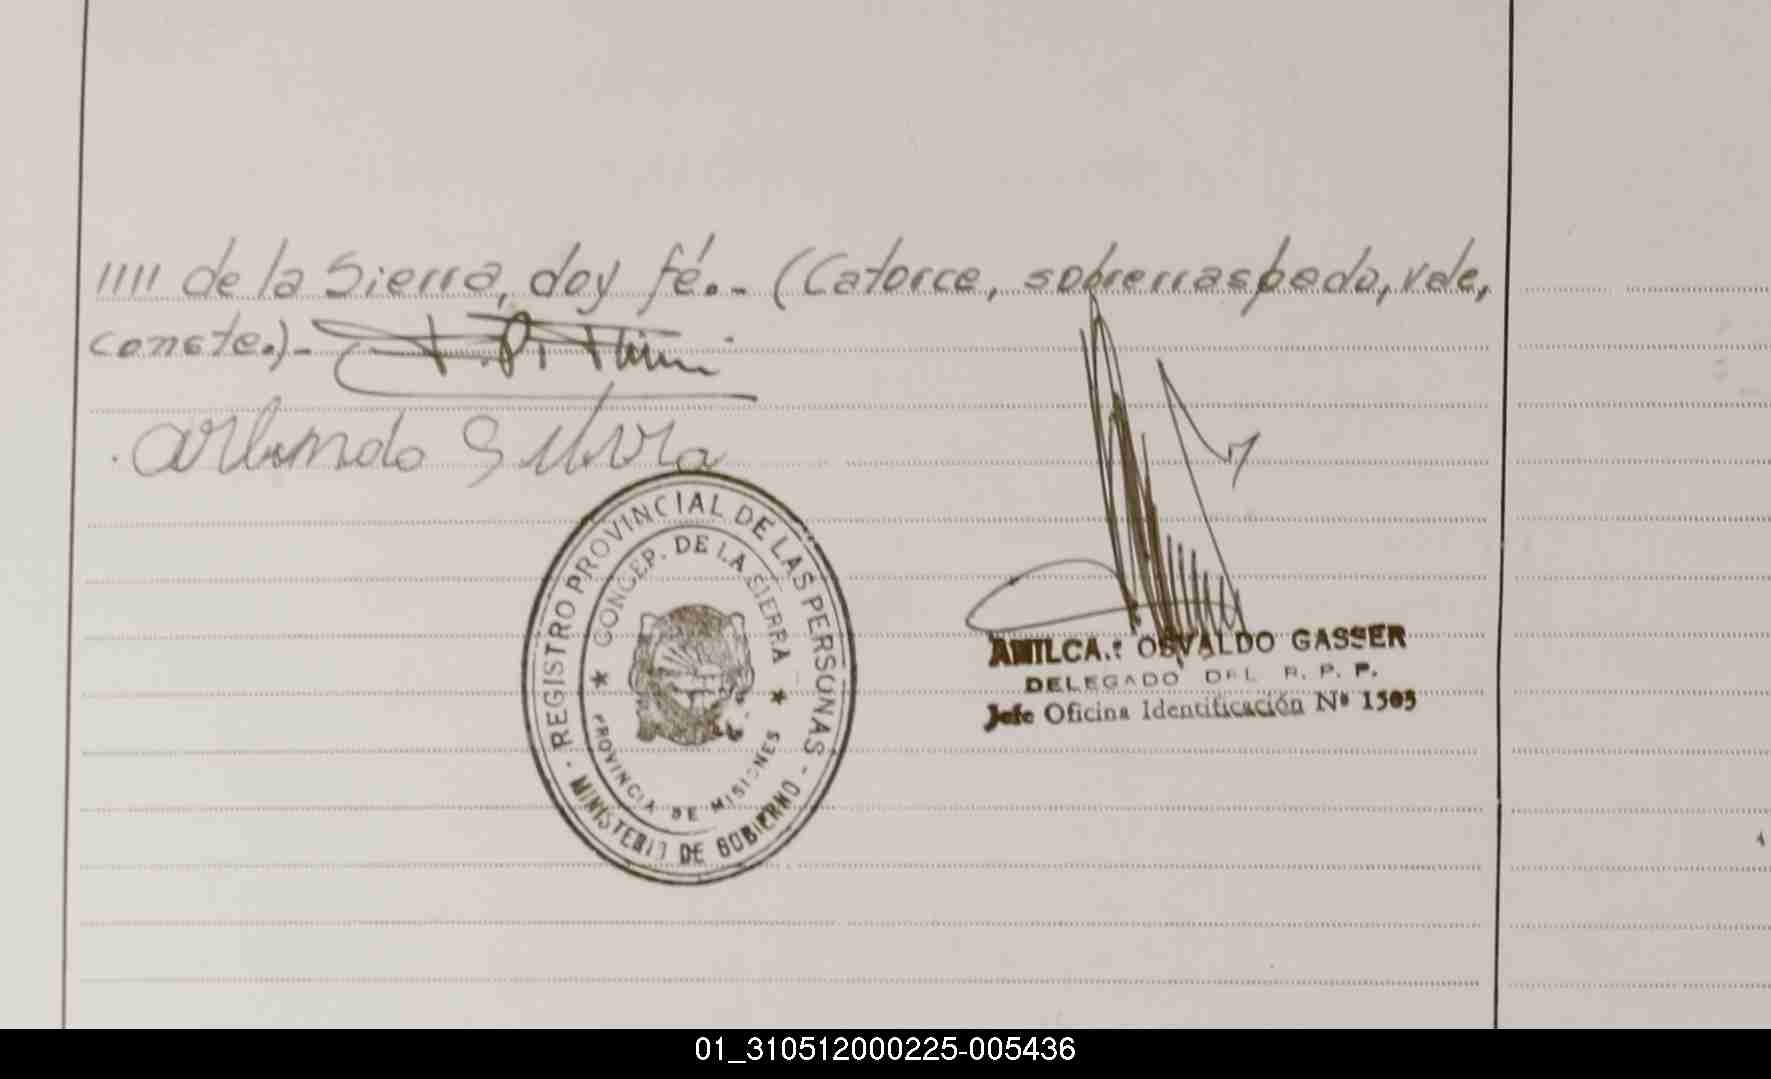 //// de la Sierra, doy fé.- (Catorce, sobrerraspado, vale,
conste.)-
REGISTRO PROVINCIAL DE LAS PERSONAS
CONCEP. DE LA SIERRA
PROVINCIA DE MISIONES
- MINISTERIO DE GOBIERNO -
AMILCAR OSVALDO GASSER
DELEGADO DEL R. P. P.
Jefe Oficina Identificación Nº 1505
01_310512000225-005436